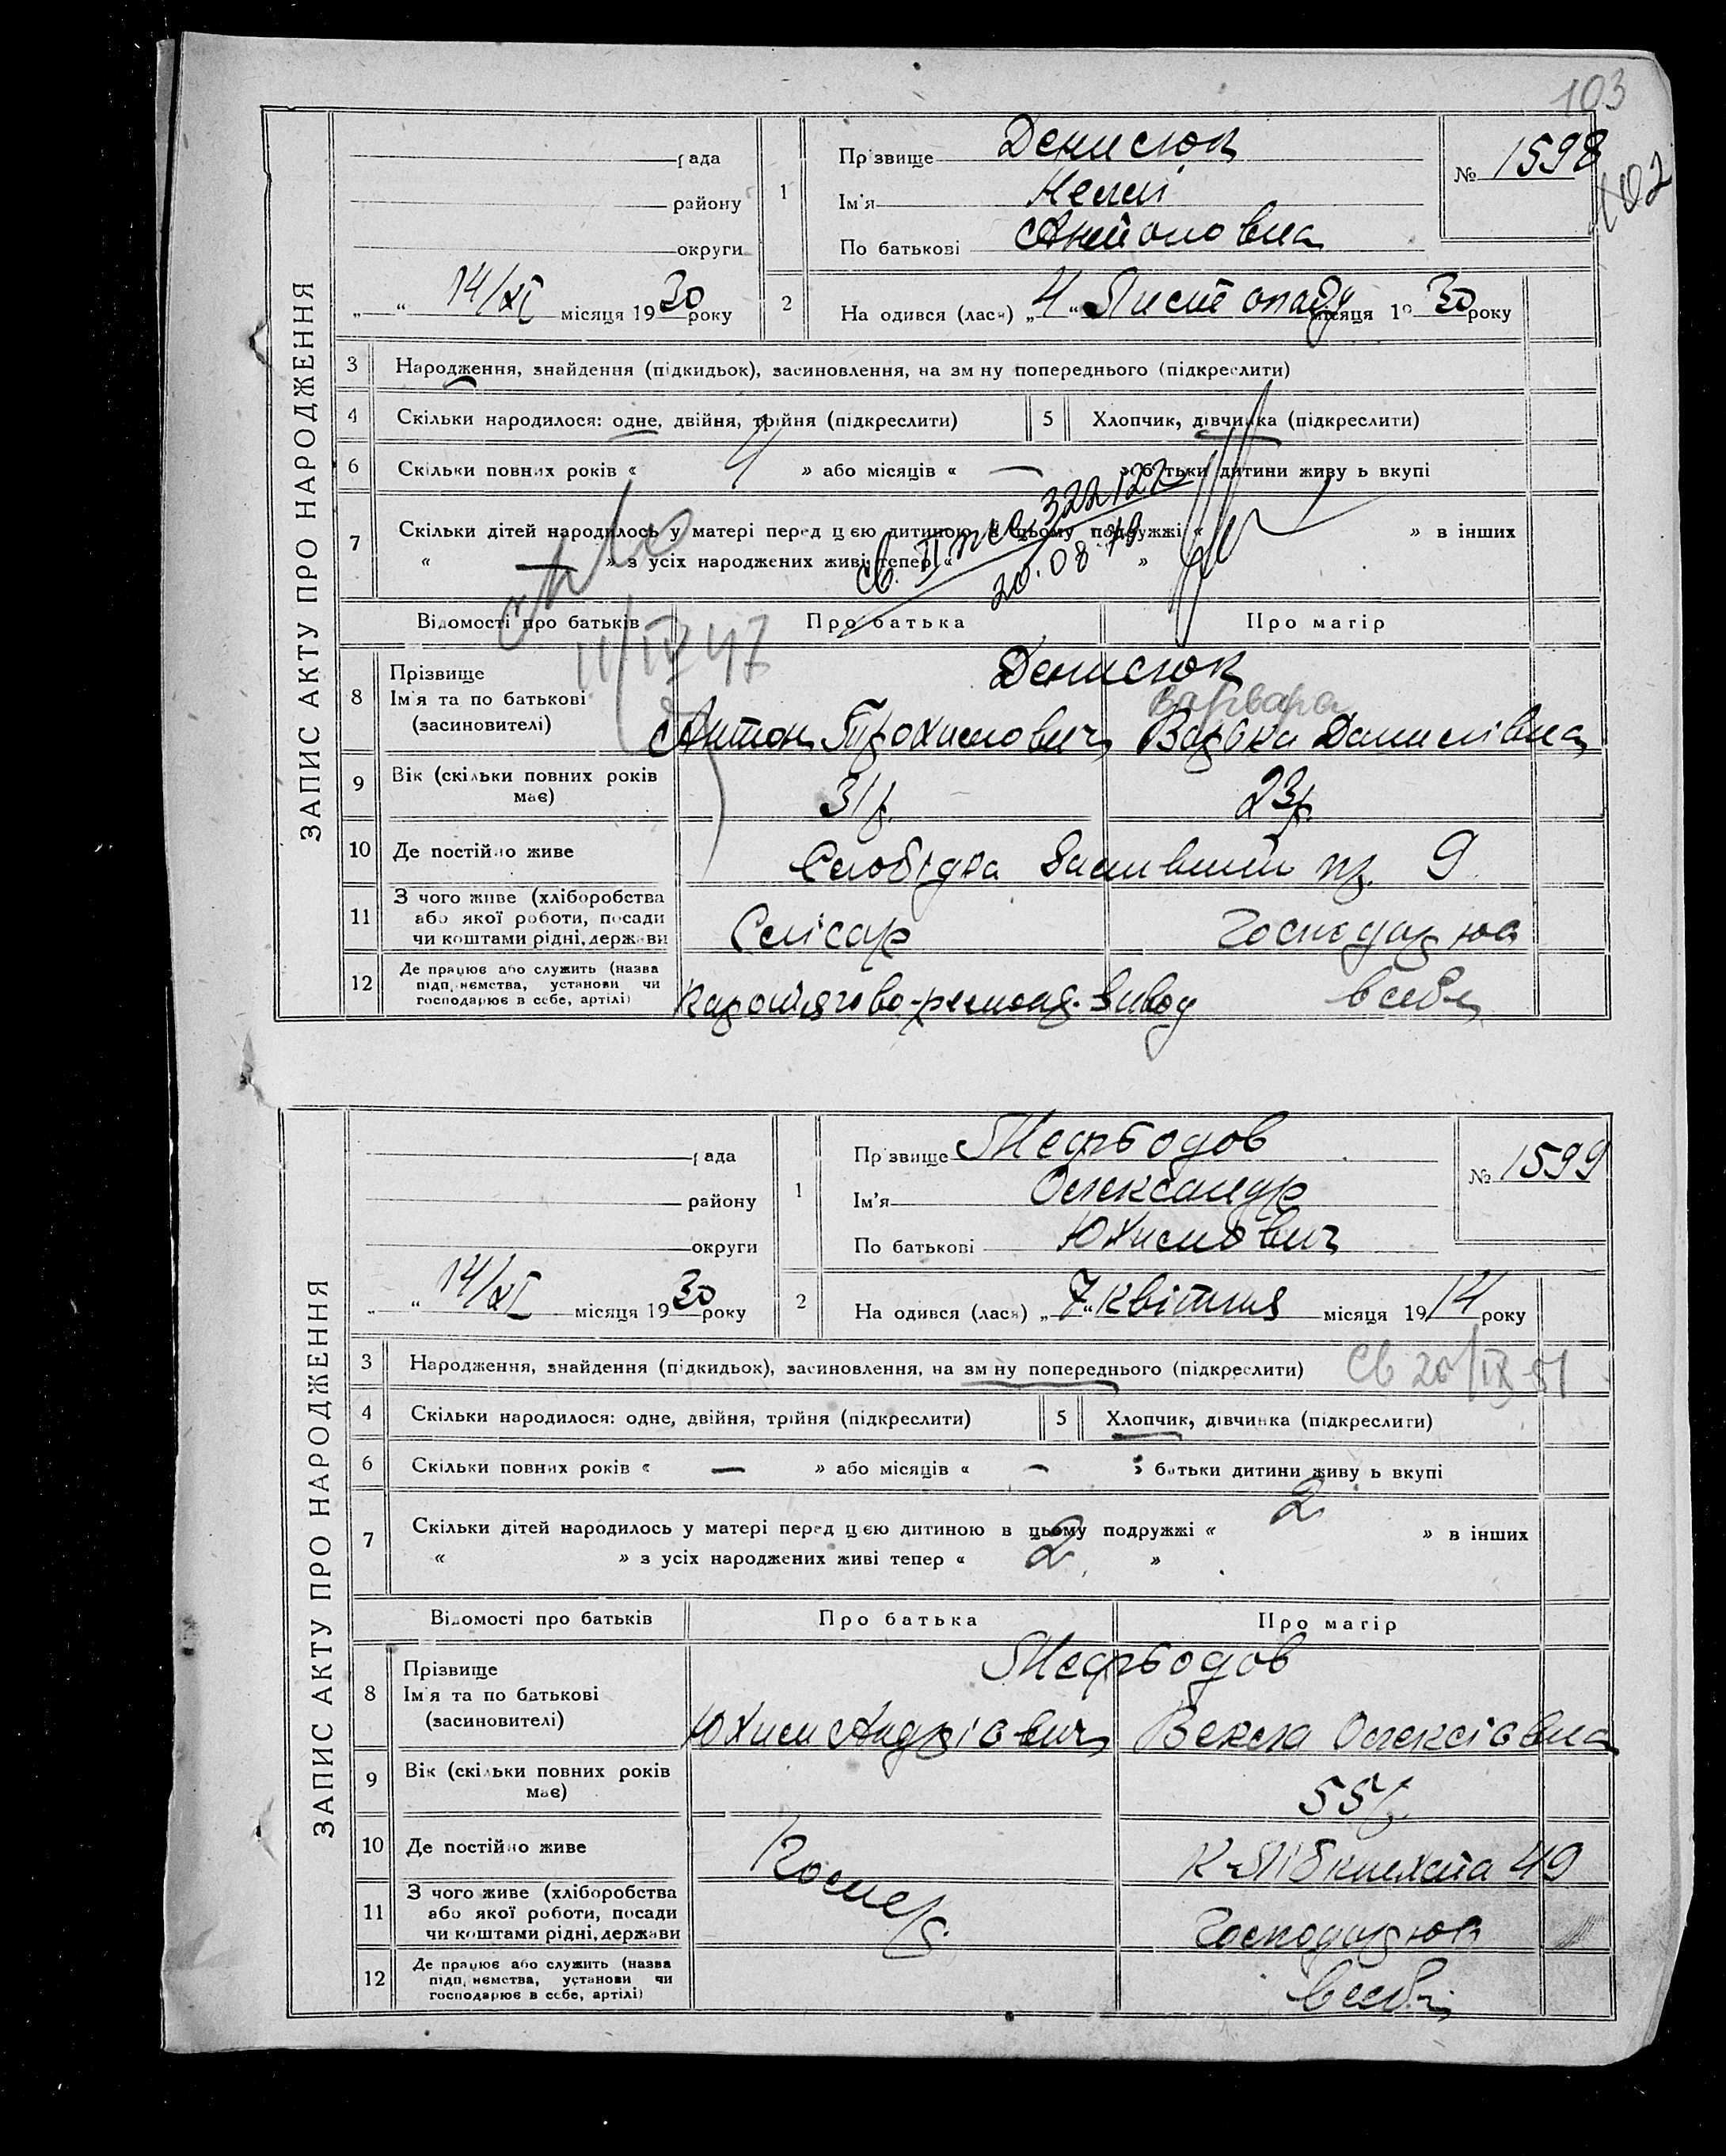 103
102
ЗАПИС АКТУ ПРО НАРОДЖЕННЯ
рада
району
округи
„ “ 14/XI місяця 1930 року
1
Прізвище Денисюк
Ім'я Неллі
По батькові Антоновна
№ 1598
2
На одився (лася) „4“ Листопаду місяця 19 30 року
3 Народження, знайдення (підкидьок), засиновлення, на зм ну попереднього (підкреслити)
4 Скільки народилося: одне, двійня, трійня (підкреслити)
5 Хлопчик, дівчинка (підкреслити)
6 Скільки повних років « 4 » або місяців « — » батьки дитини живу ь вкупі
7 Скільки дітей народилось у матері перед цією дитиною в цьому подружжі « » в інших
« — » з усіх народжених живі тепер « »
322127
20.08
11/IV 47
Відомості про батьків
Про батька
Про матір
8 Прізвище
Ім'я та по батькові
(засиновителі)
Денисюк
Варвара
Антон Трохимович
Варвка Данилівна
9 Вік (скільки повних років має)
31р.
23р.
10 Де постійно живе
Слобідка 9
11 З чого живе (хліборобства
або якої роботи, посади
чи коштами рідні, держави
Слісар
Господарює
12 Де працює або служить (назва
підп. иємства, установи чи
господарює в себе, артілі)
завод
в себе
ЗАПИС АКТУ ПРО НАРОДЖЕННЯ
рада
району
округи
„ “ 14/XI місяця 1930 року
1
Прізвище Мефьодов
Ім'я Олександр
По батькові Юхимович
№ 1599
2
На одився (лася) „7“ квітня місяця 1914 року
3 Народження, знайдення (підкидьок), засиновлення, на зм ну попереднього (підкреслити)
Св 20/IX 51
4 Скільки народилося: одне, двійня, трійня (підкреслити)
5 Хлопчик, дівчинка (підкреслити)
6 Скільки повних років « — » або місяців « — » батьки дитини живу ь вкупі
7 Скільки дітей народилось у матері перед цією дитиною в цьому подружжі « 2 » в інших
« » з усіх народжених живі тепер « 2 »
Відомості про батьків
Про батька
Про матір
8 Прізвище
Ім'я та по батькові
(засиновителі)
Мефьодов
Юхим Андріович
Векла Олексіовна
9 Вік (скільки повних років має)
55р.
10 Де постійно живе
К-Лібкнехта 49
11 З чого живе (хліборобства
або якої роботи, посади
чи коштами рідні, держави
Господарює
12 Де працює або служить (назва
підп. иємства, установи чи
господарює в себе, артілі)
в себе